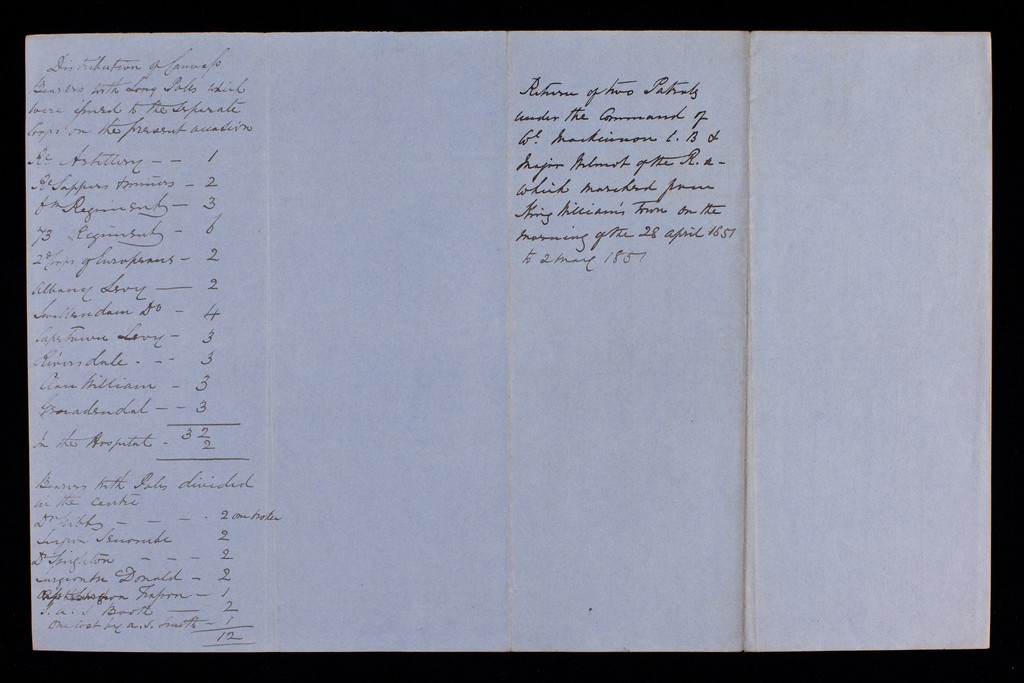 Distribution of Canvass
Bearers with Long Poles which
were issued to the seperate
Corps on the present occasion
Rl Artillery - - 1
Rl Sappers & miners - 2
6th Regiment - 3
73 Regiment - 6
2d Corps of Europeans - 2
Albany Levy - 2
Swellendam Do - 4
Cape Town Levy - 3
Riversdale - - - 3
Clan William - 3
Genadendal - - 3
32
in the Hospital - 2
Bearers with Poles divided
in the centre
Dr Gibb - - - - 2 one broken
Surgeon 2
Dr Singleton - - - 2
Surgeon Mc Donald - 2
- 1
S. a. S Booth - 2
One lost by a. S. Smith - 1
12
Return of two Patrols
under the Command of
Col. Mackinnon C. B &
Major Wilmot of the R. a -
which marched from
King William's Town on the
morning of the 28 april 1851
to 2 May 1851